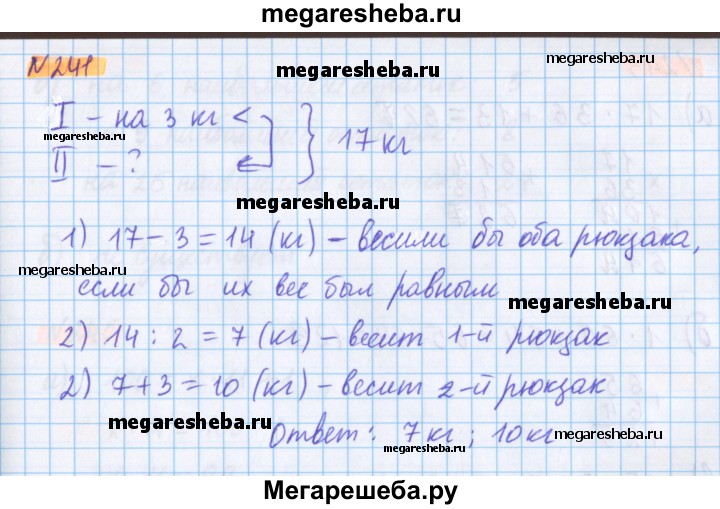 megaresheba.ru
N 241
megaresheba.ru
I - на 3 кг <
megaresheba.ru
} 17 кг
II - ?
megaresheba.ru
1) 17 - 3 = 14 (кг) - весили бы оба рюкзака,
megaresheba.ru
если бы их вес был равным
megaresheba.ru
2) 14 : 2 = 7 (кг) - весит 1-й рюкзак
2) 7 + 3 = 10 (кг) - весит 2-й рюкзак
megaresheba.ru
Ответ: 7 кг; 10 кг
megaresheba.ru
megaresheba.ru
Мегарешеба.ру